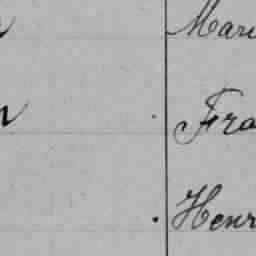 Mari
Fra
Henr